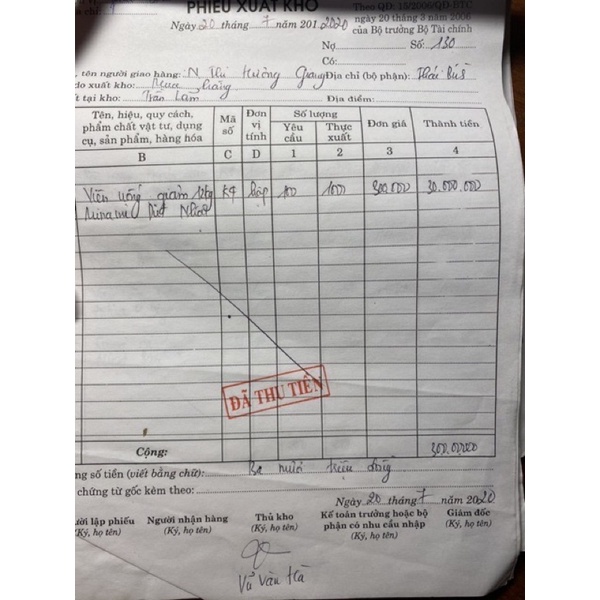 PHIẾU XUẤT KHO
Theo QĐ: 15/2006/QĐ-BTC
Ngày 20 tháng 7 năm 201 2020
ngày 20 tháng 3 năm 2006
của Bộ trưởng Bộ Tài chính
Nợ
Số: 130
Có:
, tên người giao hàng: N Thị Hương Giang Địa chỉ (bộ phận): Thái Bình
do xuất kho: hàng
ất tại kho: Trần Lãm Địa điểm:
Tên, hiệu, quy cách, phẩm chất vật tư, dụng cụ, sản phẩm, hàng hóa
Mã số
Đơn vị tính
Số lượng
Yêu cầu
Thực xuất
Đơn giá
Thành tiền
B C D 1 2 3 4
Viên uống giảm 12kg K9 hộp 100 1000 300.000 30.000.000
Minami Nhật
ĐÃ THU TIỀN
Cộng: 300.00000
ng số tiền (viết bằng chữ): Ba mươi triệu đồng
chứng từ gốc kèm theo:
Ngày 20 tháng 7 năm 2020
ười lập phiếu Người nhận hàng Thủ kho Kế toán trưởng hoặc bộ phận có nhu cầu nhập Giám đốc
(Ký, họ tên) (Ký, họ tên) (Ký, họ tên) (Ký, họ tên) (Ký, họ tên)
Vũ Văn Hà